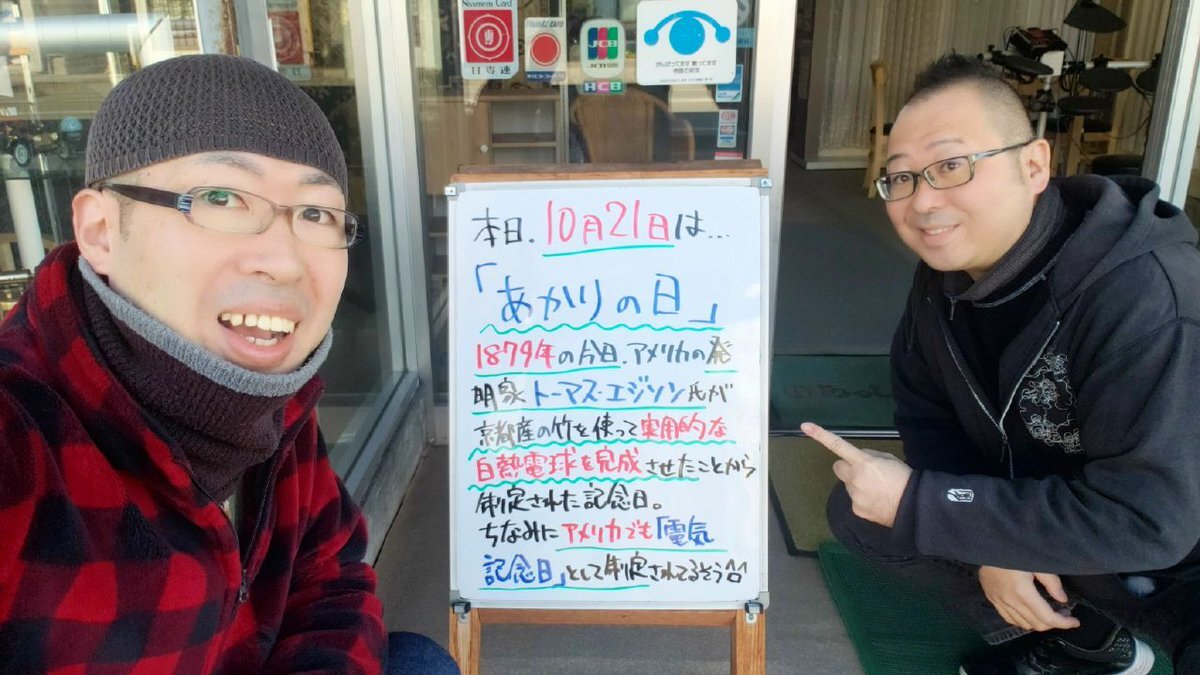 Nissenren Card
日専連
ORANGE CARD
JCB
HCB
本日、10月21日は…
「あかりの日」
1879年の今日、アメリカの発
明家トーマス・エジソン氏が
京都産の竹を使って実用的な
白熱電球を完成させたことから
制定された記念日。
ちなみにアメリカでも「電気
記念日」として制定されてるそう^^